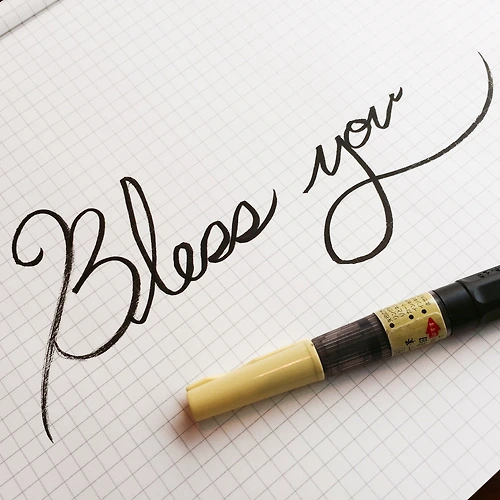 Bless you